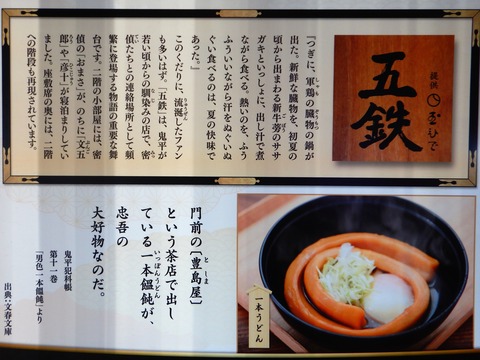 提供 玉ひで
五鉄
『つぎに、軍鶏の臓物の鍋が
出た。新鮮な臓物を、初夏の
頃から出まわる新牛蒡のササ
ガキといっしょに、出し汁で煮
ながら食べる。熱いのを、ふう
ふういいながら汗をぬぐいぬ
ぐい食べるのは、夏の快味で
あった。』
このくだりに、流涎したファン
も多いはず。「五鉄」は、鬼平が
若い頃からの馴染みの店で、密
偵たちとの連絡場所として頻
繁に登場する物語の重要な舞
台です。二階の小部屋には、密
偵の「おまさ」が、のちに「文五
郎」や「彦十」が寝泊まりしてい
ました。座敷席の奥には、二階
への階段も再現されています。
一本うどん
門前の〔豊島屋〕
という茶店で出し
ている一本饂飩が、
忠吾の
大好物なのだ。
鬼平犯科帳
第十一巻
『男色一本饂飩』より
出典:文春文庫